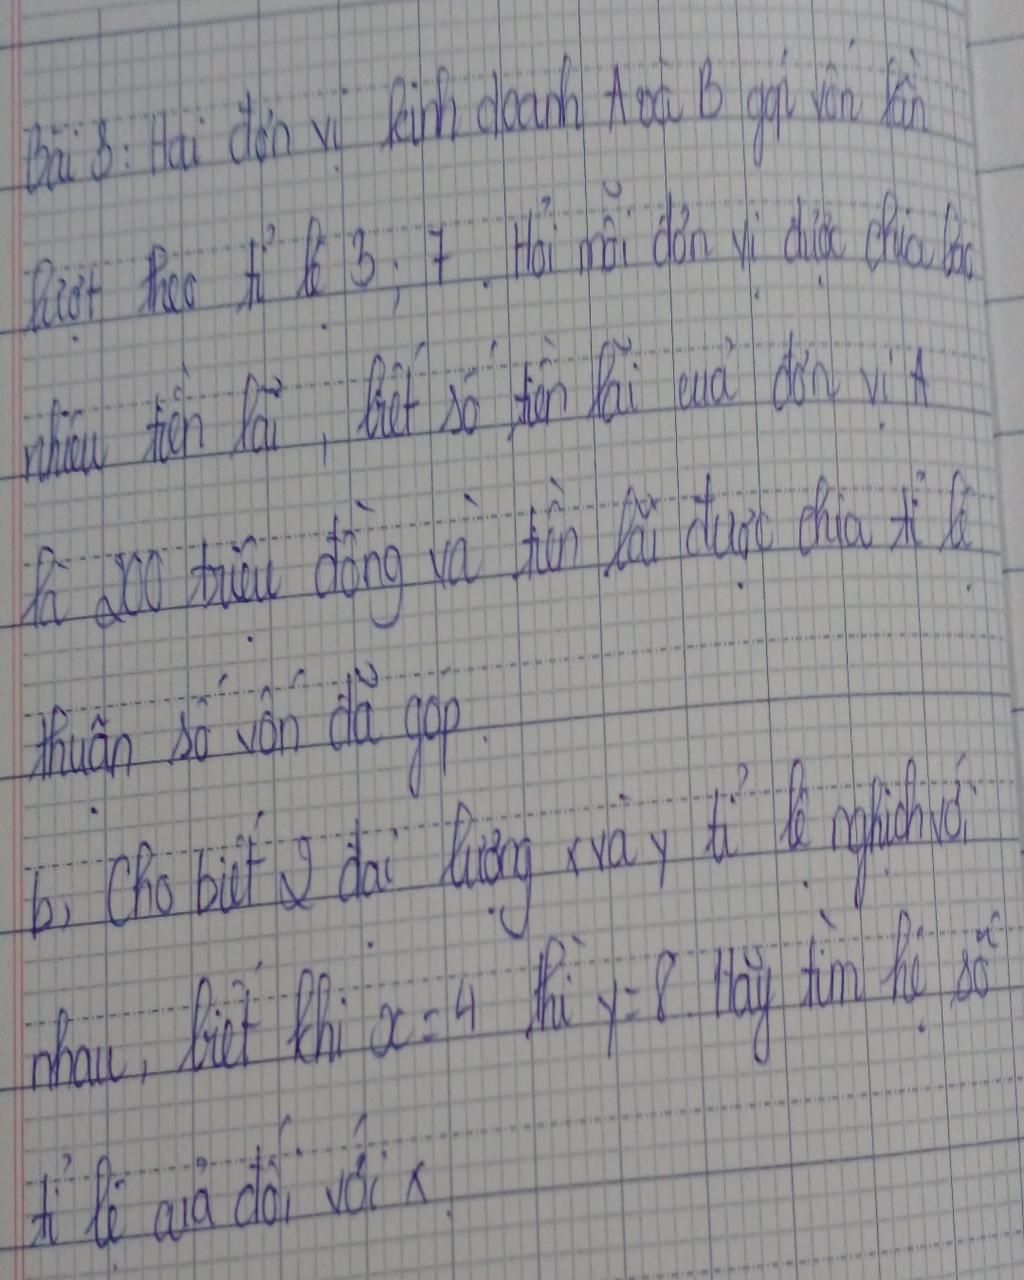 Bài 3: Hai đơn vị kinh doanh A và B góp vốn lần
lượt theo tỉ lệ 3; 7. Hỏi mỗi đơn vị được chia bao
nhiêu tiền lãi, biết số tiền lãi của đơn vị A
là 200 triệu đồng và tiền lãi được chia tỉ lệ
thuận số vốn đã góp.
b, Cho biết 2 đại lượng x và y tỉ lệ nghịch với
nhau, biết khi x = 4 thì y = 8. Hãy tìm hệ số
tỉ lệ của đối với x.